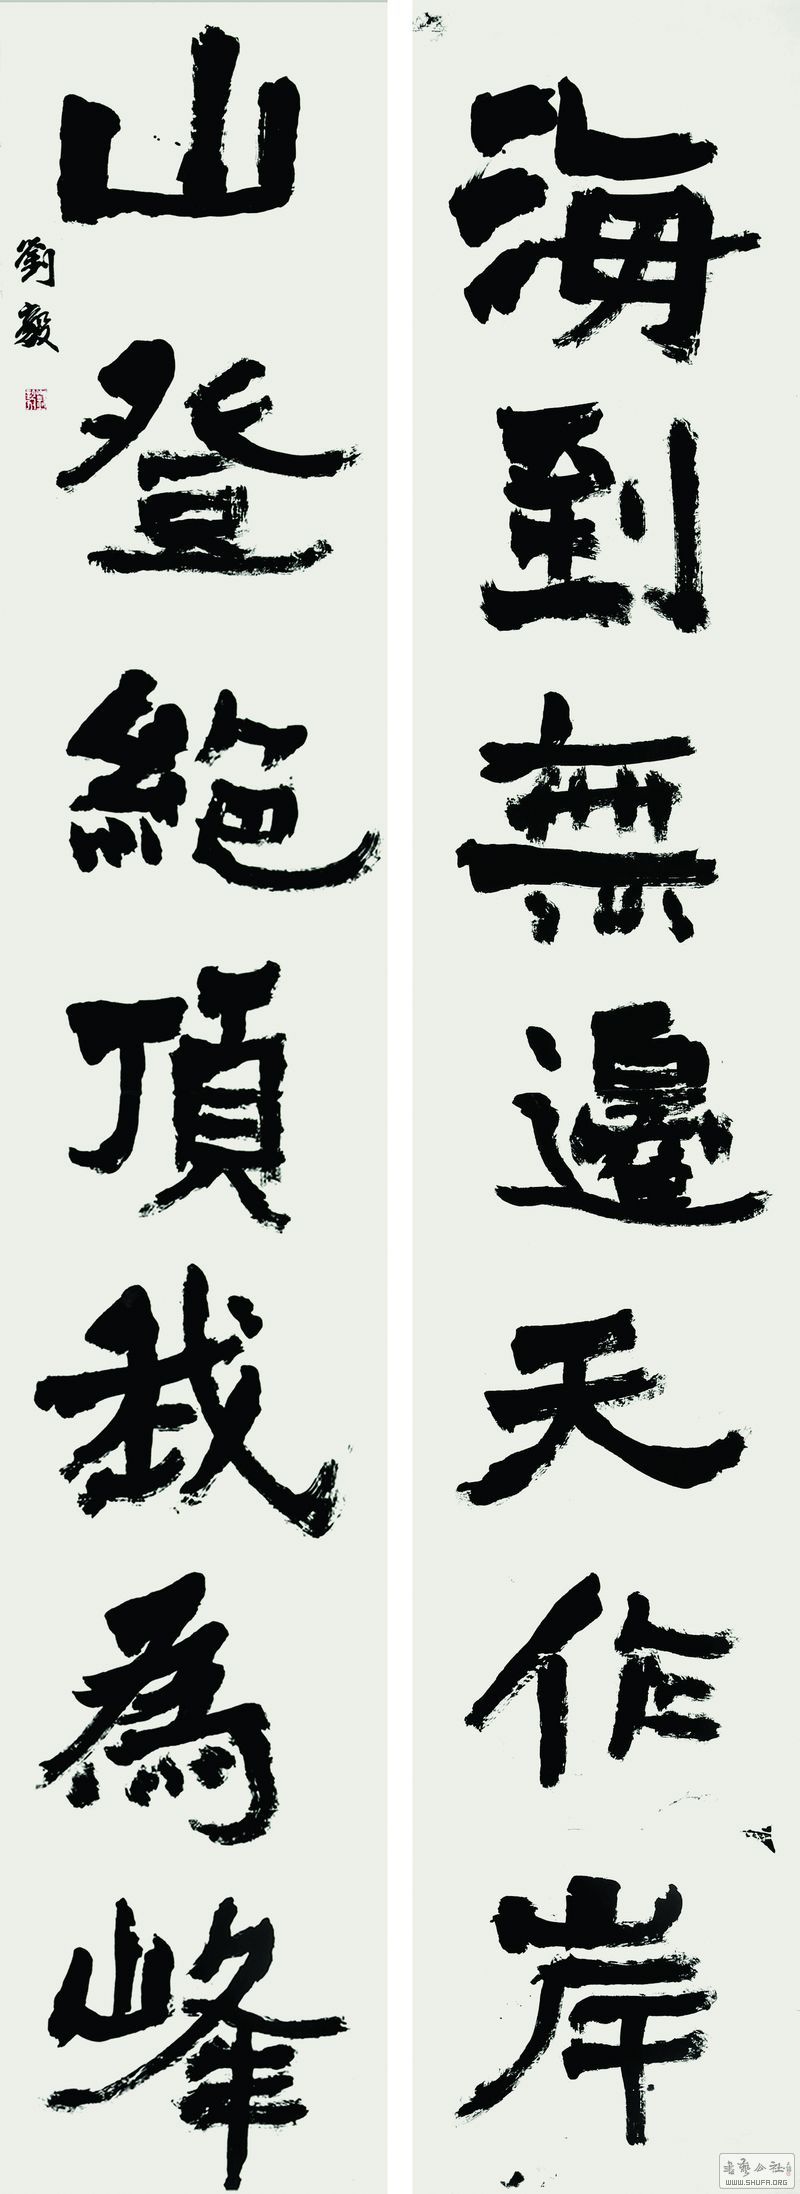 海到無邊天作岸
山登絕頂我為峰
劉毅
書藝公社
WWW.SHUFA.ORG